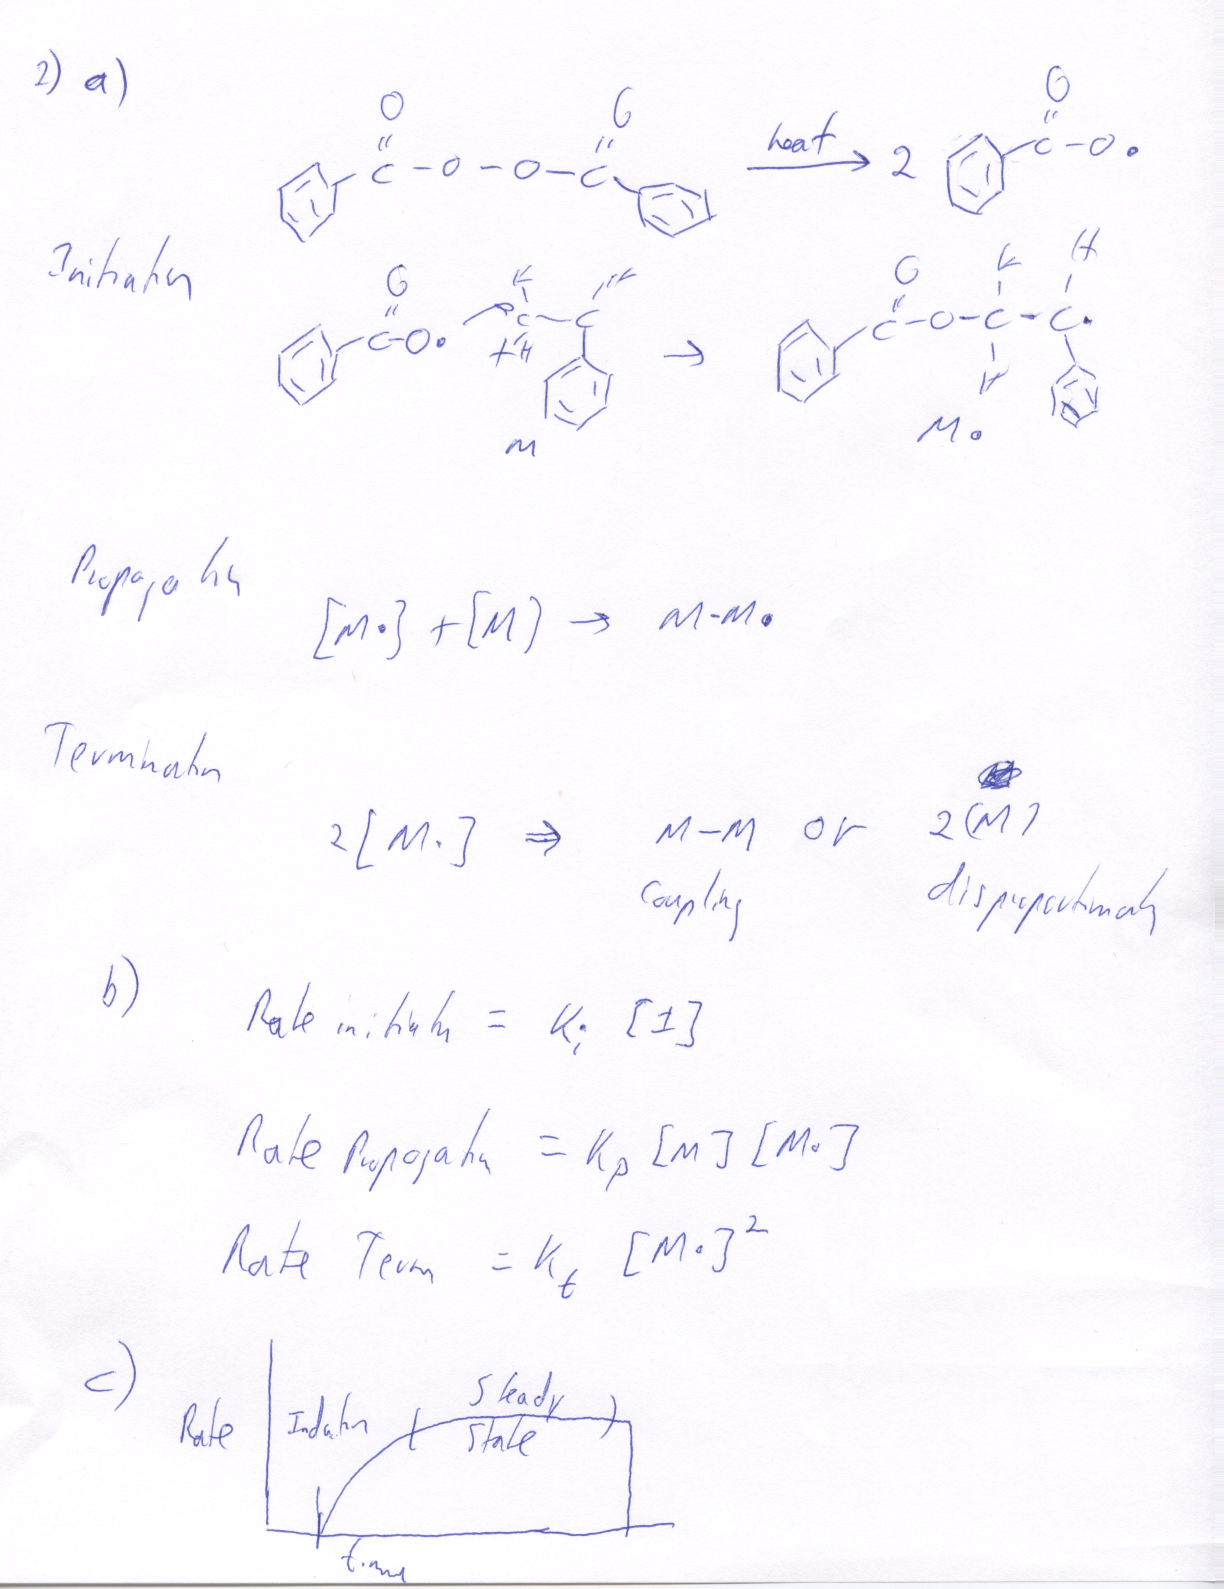 2) a)
O O O
C - O - O - C heat → 2 C - O •
Initiation
O H H O H H
C - O • C - C → C - O - C - C •
H H
M M •
Propagation
[M•] + [M] → M-M•
Termination
2[M•] ⇒ M-M or 2(M)
coupling disproportionation
b)
Rate initiation = Ki [I]
Rate Propogation = Kp [M] [M•]
Rate Term = Kt [M•]²
c)
Steady
Rate Induction State
time